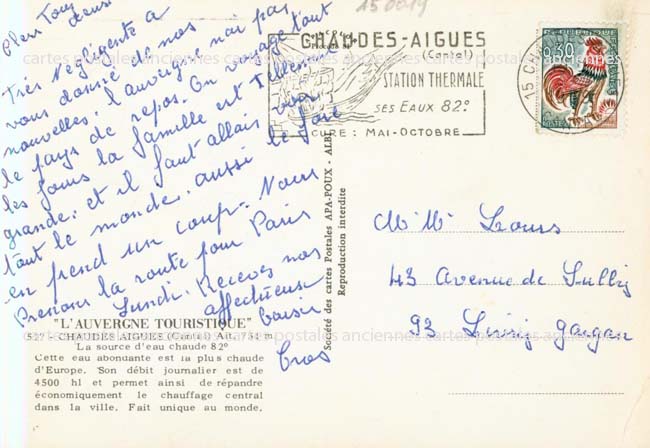 150019
Chers Tous
Très négligente à
vous donné de nos
nouvelles. l'auvergne n'ai pas
le pays de repos. On voyage tout
les jours la famille est tellement
grande. et il faut allais voir
tout le monde. aussi le foie
en prend un coup. Nous
Prenons la route pour Paris
Lundi. Recevez nos
affectueux
baisir
Cros
CHAUDES-AIGUES
(Cantal)
STATION THERMALE
SES EAUX 82°
CURE : MAI-OCTOBRE
15 CH
0,30
Société des cartes Postales APA-POUX - ALBI
Reproduction interdite
Mr Mme Lours
43 Avenue de Sully
93 Livry gargan
"L'AUVERGNE TOURISTIQUE"
527 - CHAUDES AIGUES (Cantal) Alt. 751 m
La source d'eau chaude 82°
Cette eau abondante est la plus chaude
d'Europe. Son débit journalier est de
4500 hl et permet ainsi de répandre
économiquement le chauffage central
dans la ville. Fait unique au monde.
cartes postales anciennes cartes postales anciennes cartes postales
cartes postales anciennes cartes postales anciennes cartes postales